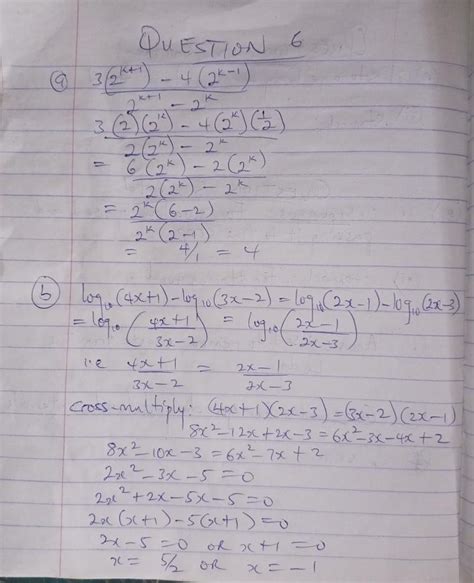 QUESTION 6
(a) 3(2^(k+1)) - 4(2^(k-1))
2^(k+1) - 2^k
3(2)(2^k) - 4(2^k)(1/2)
2(2^k) - 2^k
= 6(2^k) - 2(2^k)
2(2^k) - 2^k
= 2^k(6-2)
2^k(2-1)
= 4/1 = 4
(b) log₁₀(4x+1) - log₁₀(3x-2) = log₁₀(2x-1) - log₁₀(2x-3)
= log₁₀(4x+1 / 3x-2) = log₁₀(2x-1 / 2x-3)
i.e 4x+1 / 3x-2 = 2x-1 / 2x-3
Cross-multiply: (4x+1)(2x-3) = (3x-2)(2x-1)
8x²-12x+2x-3 = 6x²-3x-4x+2
8x²-10x-3 = 6x²-7x+2
2x²-3x-5=0
2x²+2x-5x-5=0
2x(x+1)-5(x+1)=0
2x-5=0 OR x+1=0
x= 5/2 OR x=-1